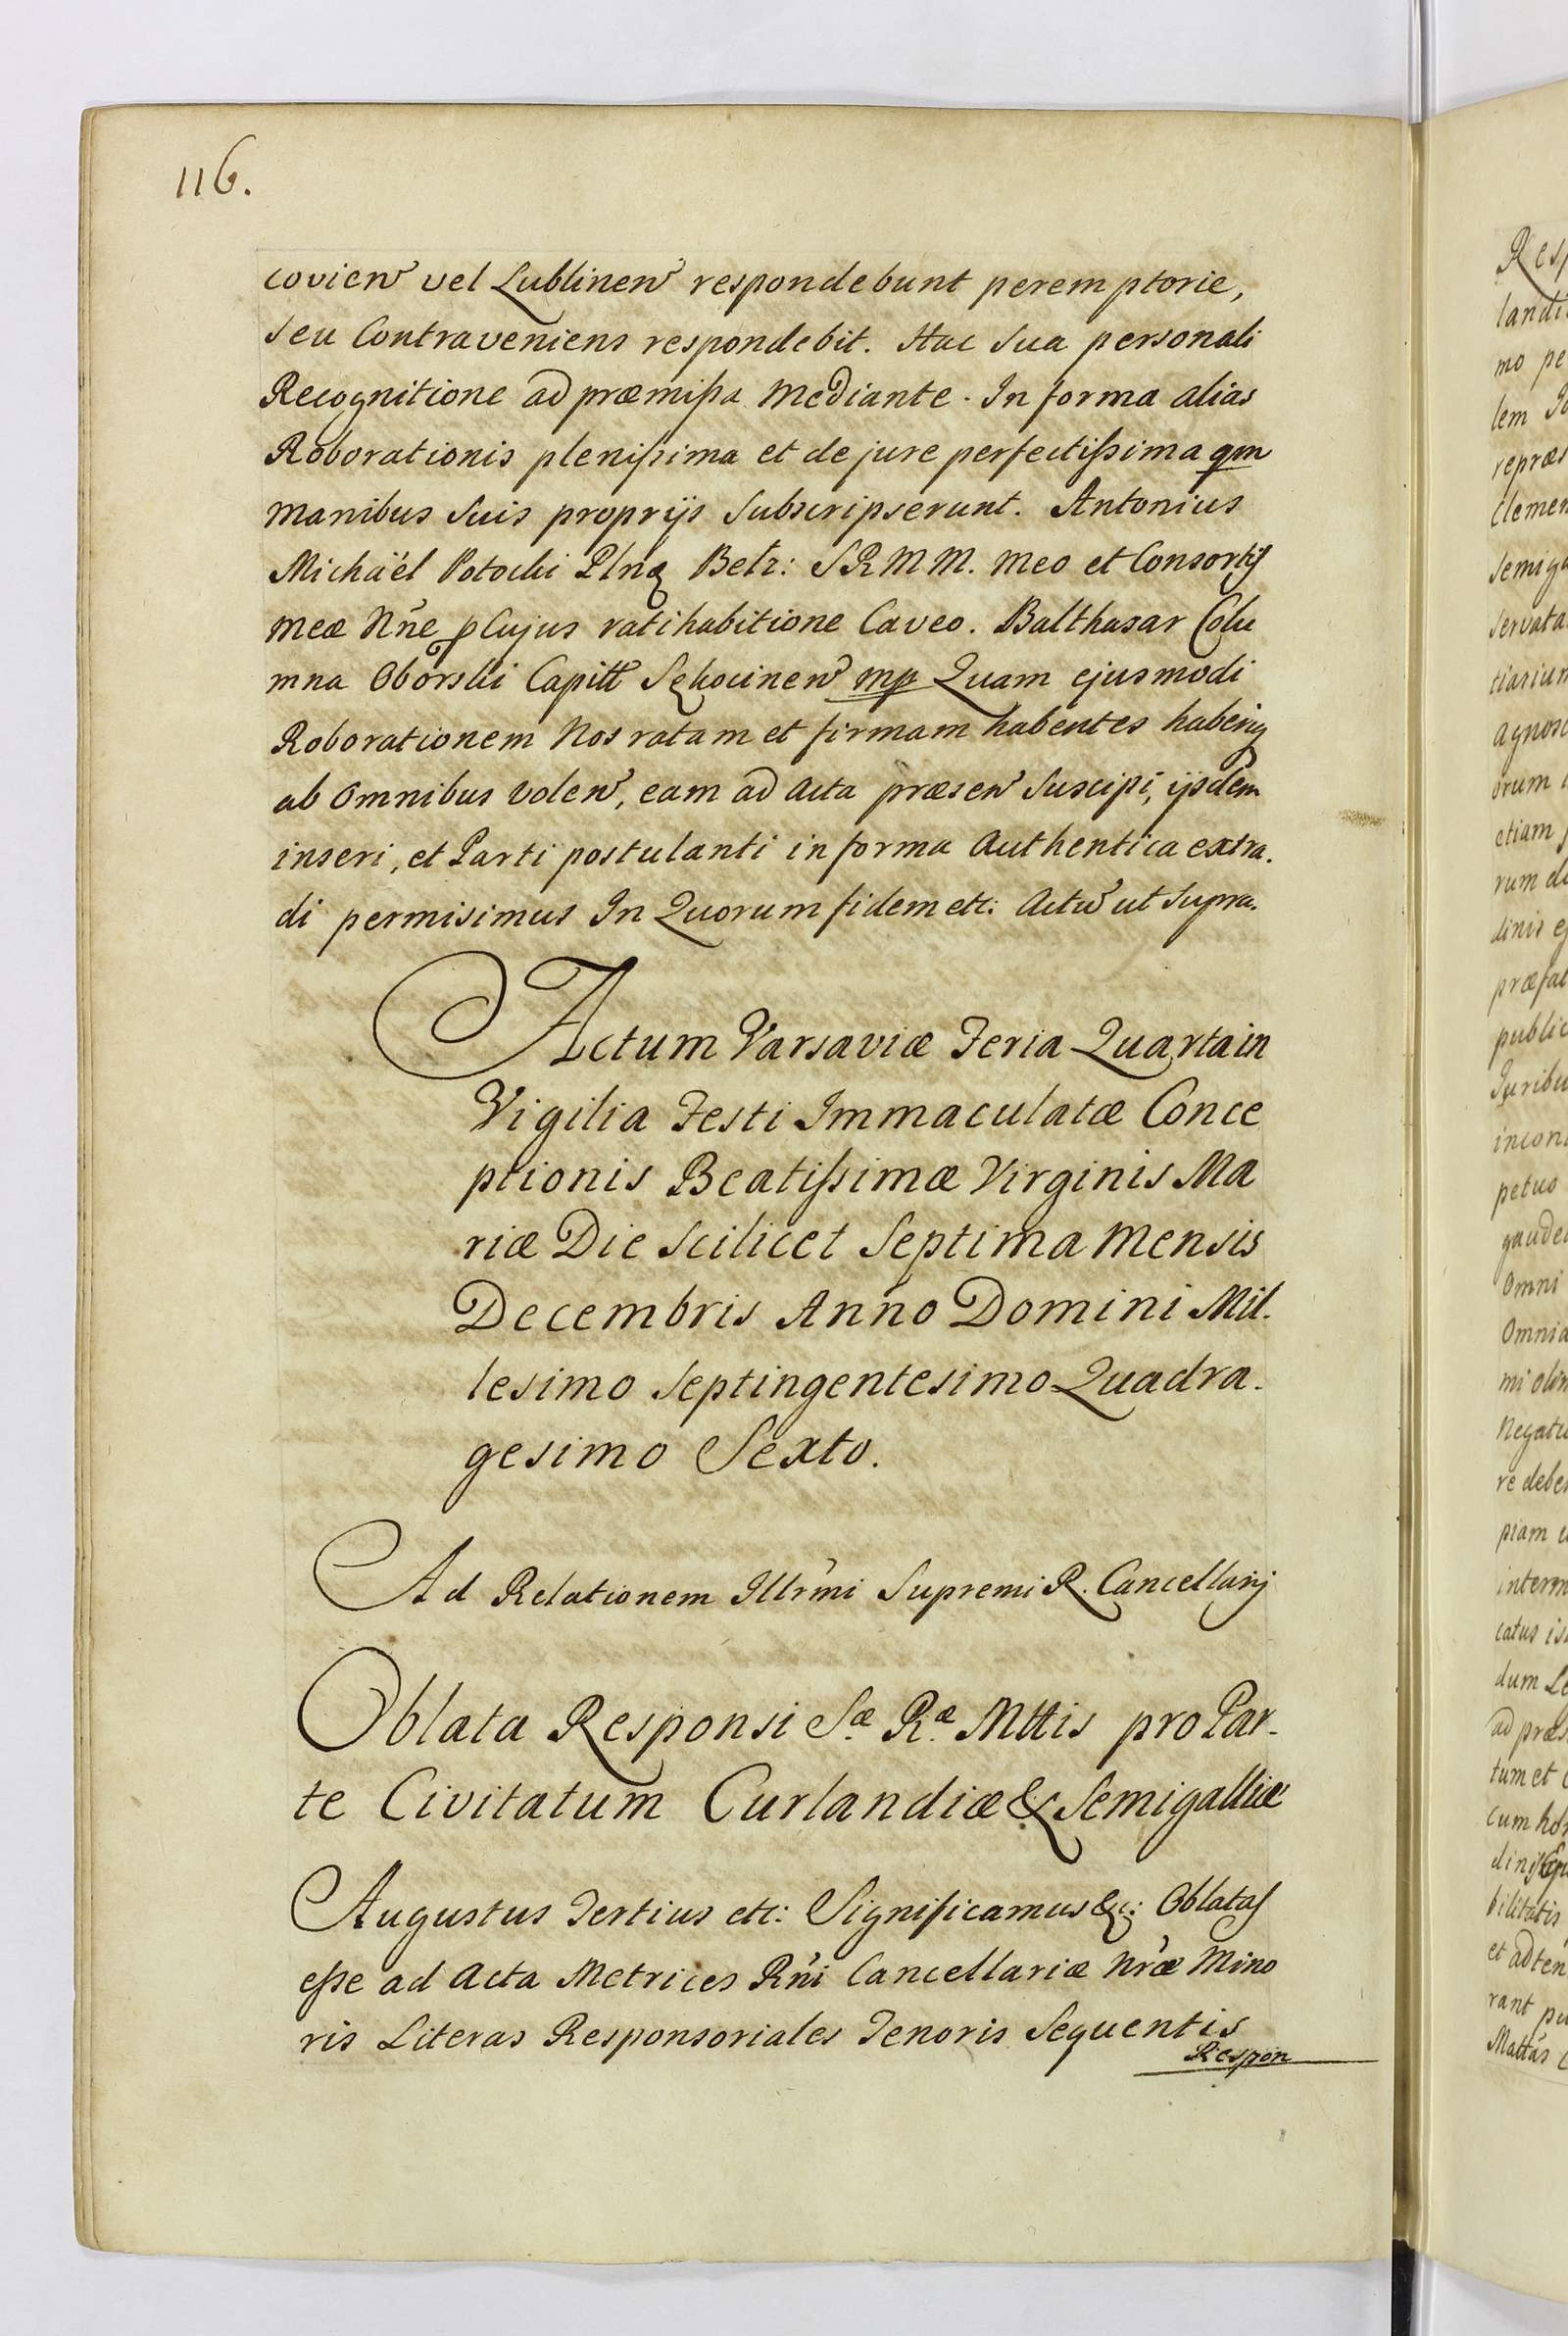 116.
covien vel Lublinen respondebunt peremptorie,
seu Contraveniens respondebit. Hac Sua personali
Recognitione ad præmißa Mediante. In forma alias
Roborationis plenißima et de jure perfectißima qm
manibus Suis proprijs Subscripserunt. Antonius
Michaël Potocki Plnæ Belz: SRMM. meo et Consortis
meæ Nne plujus ratihabitione Caveo. Balthasar Colu
mna Oborski Capitt Sękocinen mp Quam ejusmodi
Roborationem Nos ratam et firmam habentes haberiq
ab Omnibus volen, eam ad Acta præsen Suscipi, ijsdem
inseri, et Parti postulanti in forma Authentica extra.
di permisimus In Quorum fidem etc: Actu ut Supra.
Actum Varsaviæ Feria Quarta in
Vigilia Festi Immaculatæ Conce
ptionis Beatißimæ Virginis Ma
riæ Die Scilicet Septima Mensis
Decembris Anno Domini Mil.
lesimo Septingentesimo Quadra.
gesimo Sexto.
Ad Relationem Illrmi Supremi R. Cancellarij
Oblata Responsi Sæ Ræ Mttis pro Par-
te Civitatum Curlandiæ & Semigalliæ
Augustus Tertius etc: Significamus &c: Oblatas
eße ad Acta Metrices Rni Cancellariæ Nræ Mino
ris Literas Responsoriales Tenoris Sequentis
Respon
Res
landi
mo pe
lem
repræs
Clemen
Semiga
Servata
tiarium
agnosc
orum
etiam
rum di
dinis e
præfat
public
Juribu
incon
petuo
gaude
Omni
Omnia
mi olim
Negatu
re debe
piam
interm
catus is
dum Le
ad præs
tum et
cum ho
bilitatis
et ad ten
rant pu
Mattas